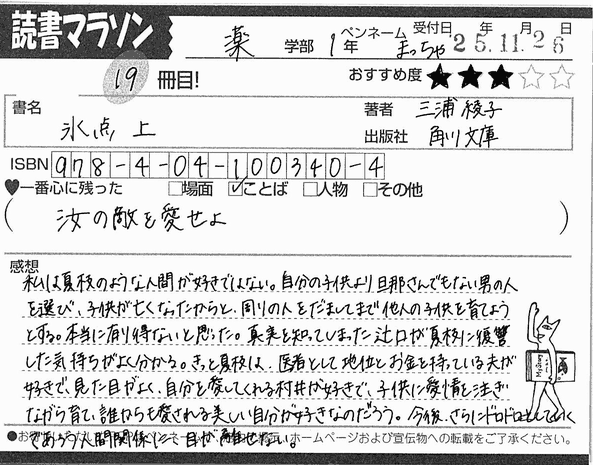 読書マラソン 薬 学部 1年 ペンネーム まっちゃ 受付日 25年11月26日
19 冊目! おすすめ度 ★★★☆☆
書名 氷点 上
著者 三浦綾子
出版社 角川文庫
ISBN 978-4-04-100340-4
♥一番心に残った □場面 ☑ことば □人物 □その他
(汝の敵を愛せよ)
感想
私は夏枝のような人間が好きではない。自分の子供より旦那さんでもない男の人
を選び、子供が亡くなったからと、周りの人をだましてまで他人の子供を育てよう
とする。本当に有り得ないと思った。真実を知ってしまった辻口が夏枝に復讐
した気持ちがよく分かる。きっと夏枝は、医者として地位とお金を持っている夫が
好きで、見た目がよく、自分を愛してくれる村井が好きで、子供に愛情を注ぎ
ながら育て、誰からも愛される美しい自分が好きなのだろう。今後、さらにドロドロとしていく
であろう人間関係に、目が離せない。
ホームページおよび宣伝物への転載をご了承ください。